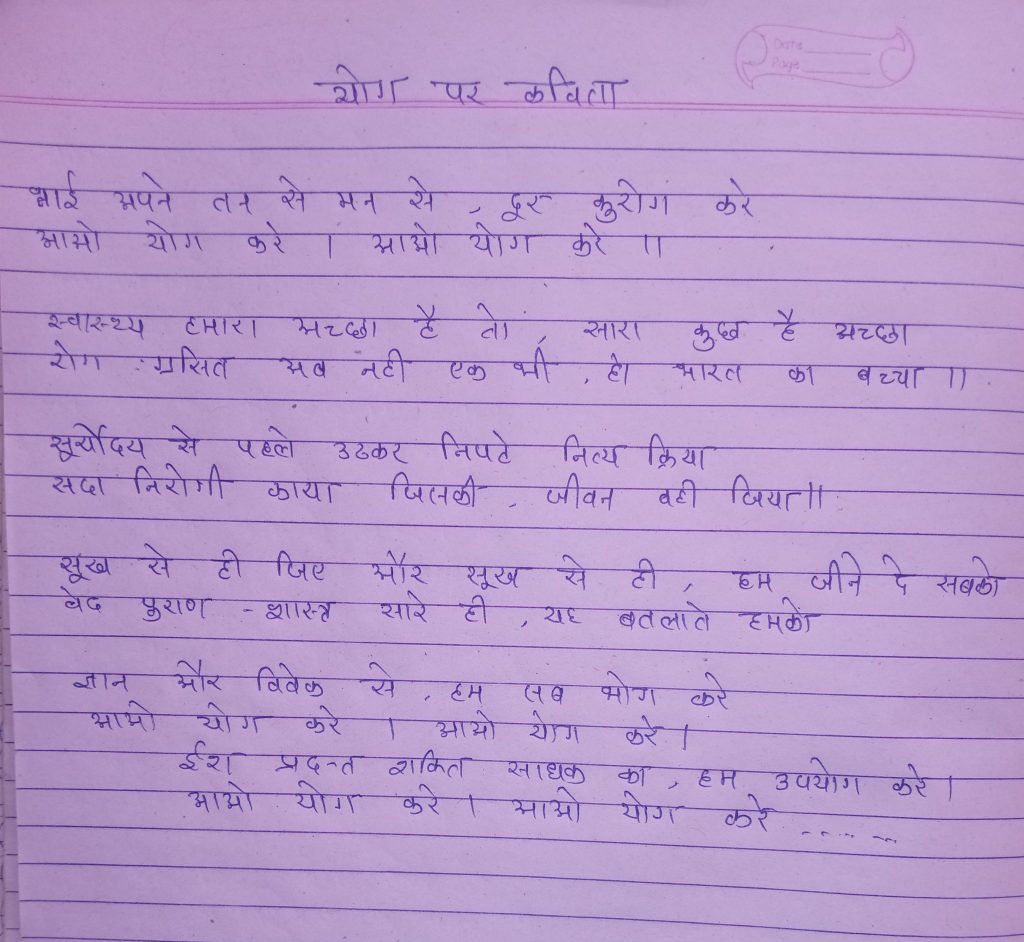 Date
Page
योग पर कविता
भाई अपने तन से मन से , दूर कुरोग करे
आओ योग करे । आओ योग करे ॥
स्वास्थ्य हमारा अच्छा है तो , सारा कुछ है अच्छा
रोग ग्रसित अब नही एक भी , हो भारत का बच्चा ॥
सूर्योदय से पहले उठकर निपटे नित्य क्रिया
सदा निरोगी काया जिसकी , जीवन वही जिया॥
सूख से ही जिए और सूख से ही , हम जीने दे सबको
वेद पुराण - शास्त्र सारे ही , यह बतलाते हमको
ज्ञान और विवेक से , हम सब भोग करे
आओ योग करे । आओ योग करे ।
ईश प्रदन्त शकित साधक का , हम उपयोग करे ।
आओ योग करे । आओ योग करे .....